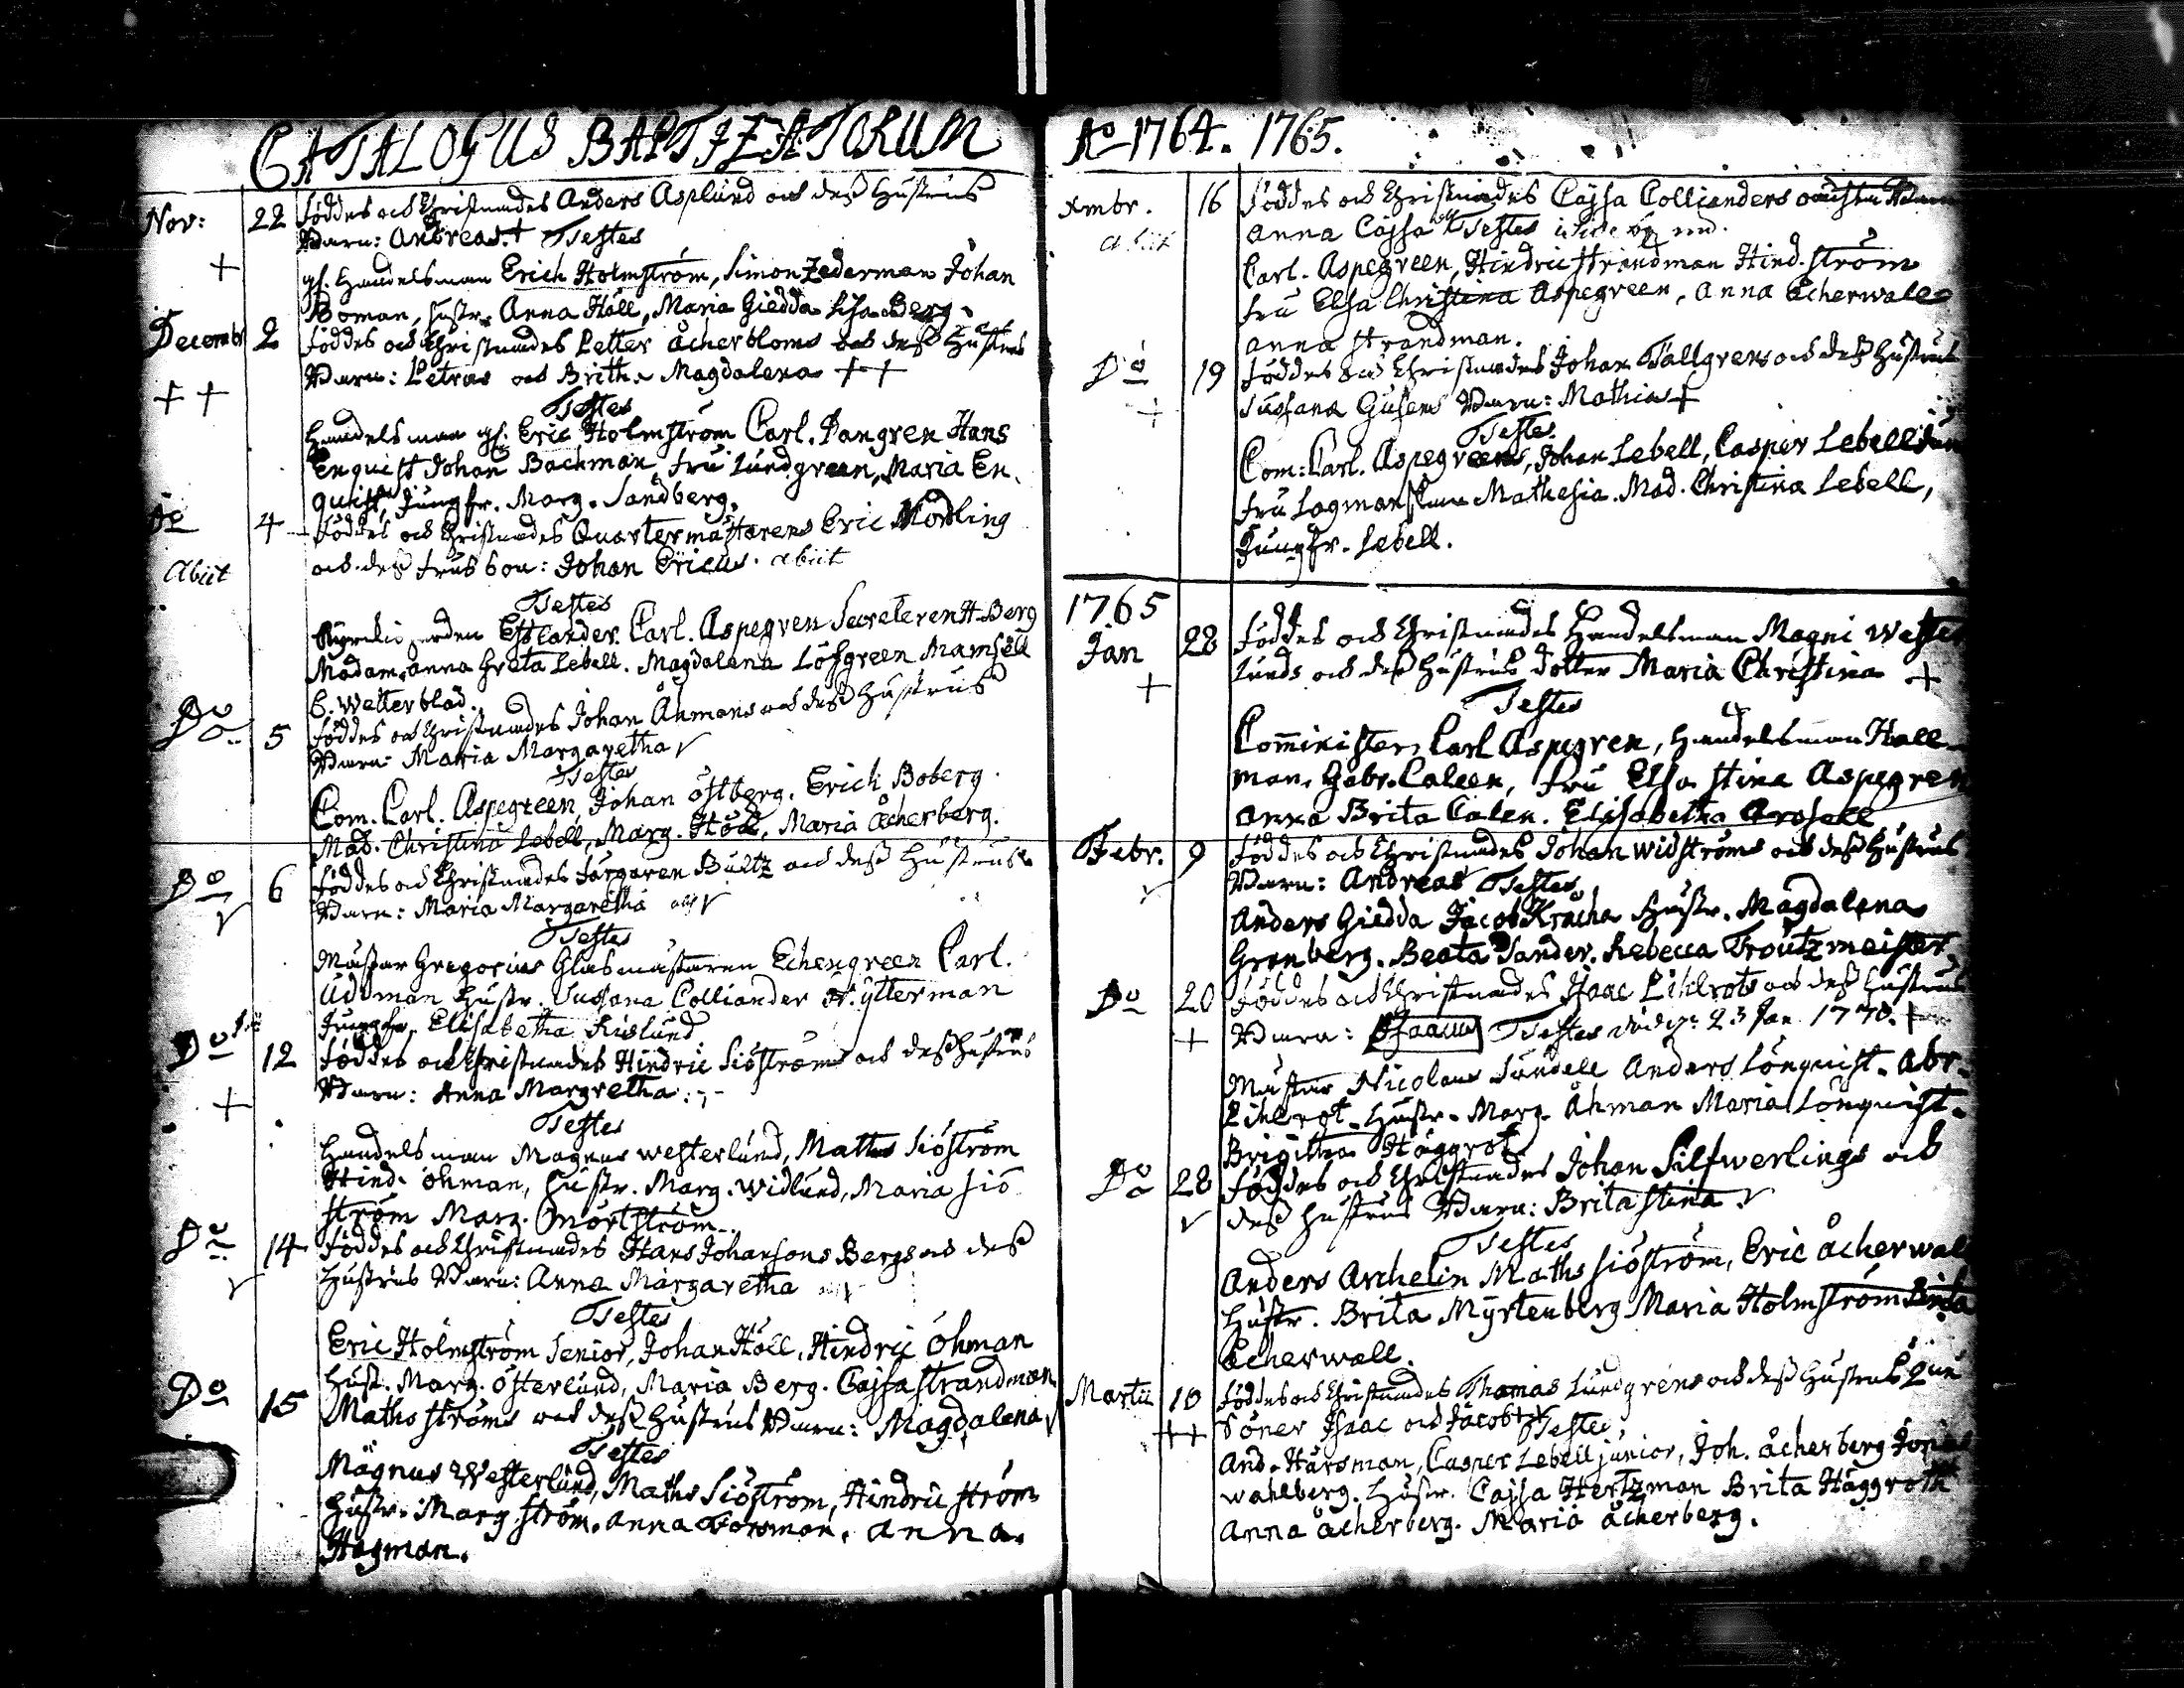 CATALOGUS BAPTIZATORUM
Nov: 22 Föddes och Christnades Anders Asplund och deß Hustrus
Barn: Andreas. + Testes
+
gl. Handelsman Erich Holmström, Simon Zederman Johan
Boman, hustr. Anna Häll, Maria Giedda Lisa Berg.
Decembr 2 Föddes och Christnades Petter Åcherbloms och deß Hustrus
Barn: Petrus och Britha Magdalena ++
++
Testes
Handelsman gl. Eric Holmström Carl. Dangren Hans
Enquist Johan Backman, fru Lundgreen, Maria En
quist, Jungfr. Marg. Sandberg.
Do 4 Föddes och Christnades Quartermästarens Eric Nordling
och deß Frus Son: Johan Ericus. abiit
Abiit
Testes
Carl. Aspegren Secreteren H. Berg
Madam Anna Greta Lebell. Magdalena Löfgreen Mamsell
C. Wetterblad.
Do 5 Föddes och Christnades Johan Åhmans och deß Hustrus
Barn: Maria Margaretha
Testes
Com. Carl. Aspegreen, Johan Östberg. Erich Boberg.
Mad. Christina Lebell, Marg. Höck, Maria Åcherberg.
Do 6 Föddes och Christnades Färgaren Bultz och deß Hustrus
Barn: Maria Margaretha
Testes
Mästar Gregorius Glasmästaren Echengreen Carl.
Udman Hustr. Susana Colliander A. Ytterman
Jungfr. Elisabetha Kislund
Do 12 Föddes och Christnades Hindric Siöströms och deß Hustrus
Barn: Anna Margretha
+
Testes
Handelsman Magnus Westerlund, Maths Siöström
Hind. Öhman, Hustr. Marg. Widlund, Maria Siö
ström Marg. Mörtström
Do 14 Föddes och Christnades Hans Johansons Bergs och deß
Hustrus Barn: Anna Margaretha
Testes
Eric Holmström Senior, Johan Höll, Hindric Öhman
Hust. Marg. Österlund, Maria Berg. Cajsa Strandman
Do 15 Maths Ströms och deß Hustrus Barn: Magdalena
Testes
Magnus Westerlund, Maths Siöström, Hindric Ström
Hustr. Marg. Ström. Anna Forsman. Anna
Hagman.
Ao 1764. 1765.
Xmbr. 16 Föddes och Christnades Cajsa Collianders
abiit
Anna Cajsa Testes
Carl. Aspegreen, Hindric Strandman Hind. Ström
Fru Elsa Christina Aspegreen, Anna Åcherwall
Anna Strandman.
Do 19 Föddes och Christnades Johan Tallgrens och deß Hustrus
Susana Gusens Barn: Mathias +
+
Testes
Com: Carl. Aspegreens, Johan Lebell, Casper Lebell Jun
Fru Lagmanskan Mathesia. Mad. Christina Lebell,
Jungfr. Lebell.
1765
Jan 28 Föddes och Christnades Handelsman Magni Wester
lunds och deß Hustrus Dotter Maria Christina +
+
Testes
Cominister Carl Aspegren, Handelsman Hall
man, Gabr. Caleen, Fru Elsa Stina Aspegren
Anna Brita Calen. Elisabetha Arosell
Febr. 9 Föddes och Christnades Johan Widströms och deß Hustrus
Barn: Andreas Testes
Anders Giedda Jacob Kråcha Hustr. Magdalena
Grönberg. Beata Sander. Rebecca Troutzmeister
Do 20 Föddes och Christnades Isaac Pihlrots och deß Hustrus
+ Barn: Isaacus Testes död d. 23 Jan 1770. +
Mästar Nicolaus Sundell Anders Lönquist. Abr.
Pihlrot. Hustr. Marg. Åhman Maria Lönquist.
Brigitha Häggrot
Do 28 Föddes och Christnades Johan Silfwerlings och
deß Hustrus Barn: Brita Stina
Testes
Anders Archelin Maths Siöström, Eric Åcherwal
Hustr. Brita Myrtenberg Maria Holmström Brita
Åcherwall.
Martii 10 Föddes och Christnades Thomas Lundgrens och deß Hustrus
++ Söner Isaac och Jacob ++ Testes
And. Hårsman, Casper Lebell junior, Joh. Åcherberg Jonas
Wahlberg. Hustr. Cajsa Hertzman Brita Häggroth
Anna Åcherberg. Maria Åcherberg.